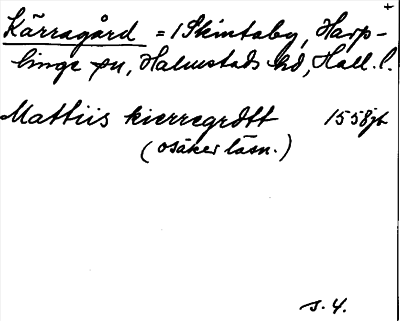 +
Kärragård = 1 Skintaby, Harp-
linge sn, Halmstads hd, Hall. l.
Mattiis kierregrdtt 1558jb
(osäker läsn.)
s. 4.